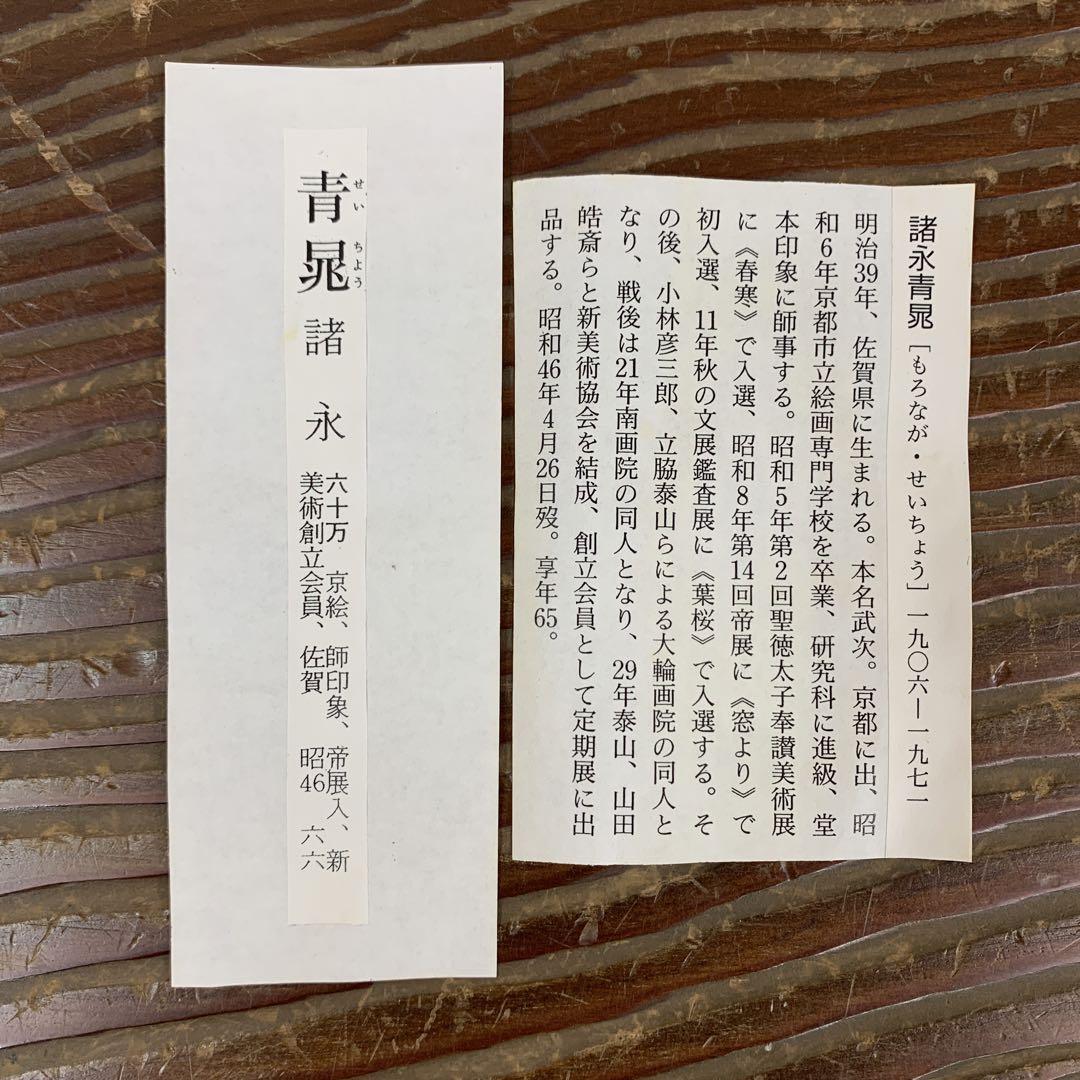 諸永青晁［もろなが・せいちょう］一九〇六―一九七一
明治39年、佐賀県に生まれる。本名武次。京都に出、昭
和6年京都市立絵画専門学校を卒業、研究科に進級、堂
本印象に師事する。昭和5年第2回聖徳太子奉讃美術展
に《春寒》で入選、昭和8年第14回帝展に《窓より》で
初入選、11年秋の文展鑑査展に《葉桜》で入選する。そ
の後、小林彦三郎、立脇泰山らによる大輪画院の同人と
なり、戦後は21年南画院の同人となり、29年泰山、山田
皓斎らと新美術協会を結成、創立会員として定期展に出
品する。昭和46年4月26日歿。享年65。
青晁 諸永
せい ちよう
六十万 京絵、師印象、帝展入、新
美術創立会員、佐賀 昭46 六六